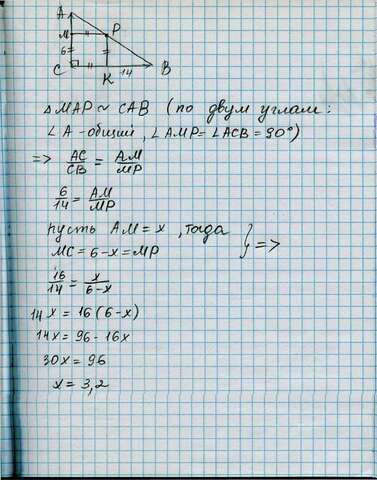 A
M
P
6
C
K
14
B
ΔMAP ~ CAB (по двум углам:
∠A - общий, ∠AMP = ∠ACB = 90°)
=> AC/CB = AM/MP
6/14 = AM/MP
пусть AM = x, тогда
MC = 6-x = MP } =>
16/14 = x/6-x
14x = 16(6-x)
14x = 96 - 16x
30x = 96
x = 3,2